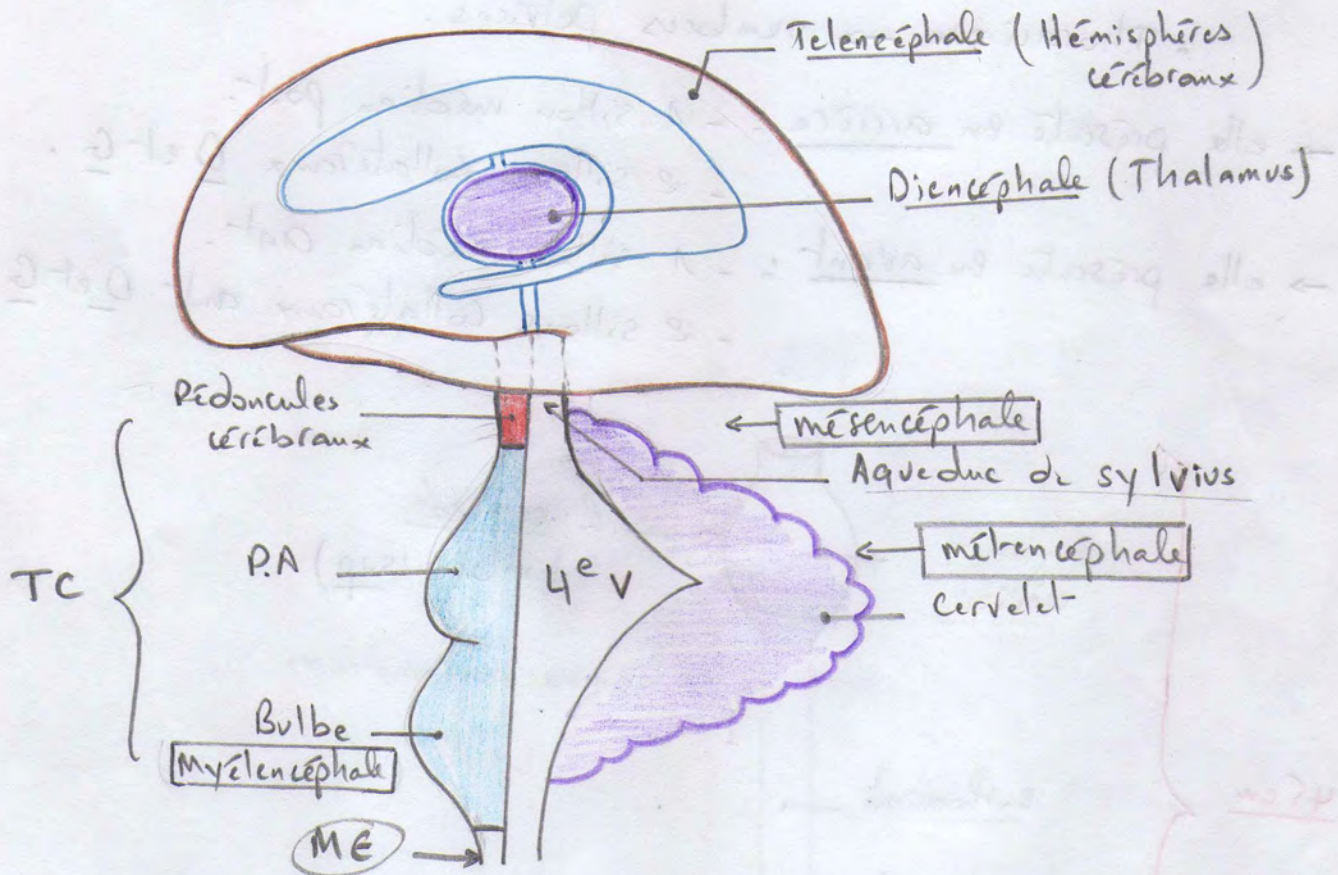 Telencéphale (Hémisphères
cérébraux)
Diencéphale (Thalamus)
Pédoncules
cérébraux
mésencéphale
Aqueduc de sylvius
P.A
4e V
métencéphale
cervelet
TC
Bulbe
Myélencéphale
ME